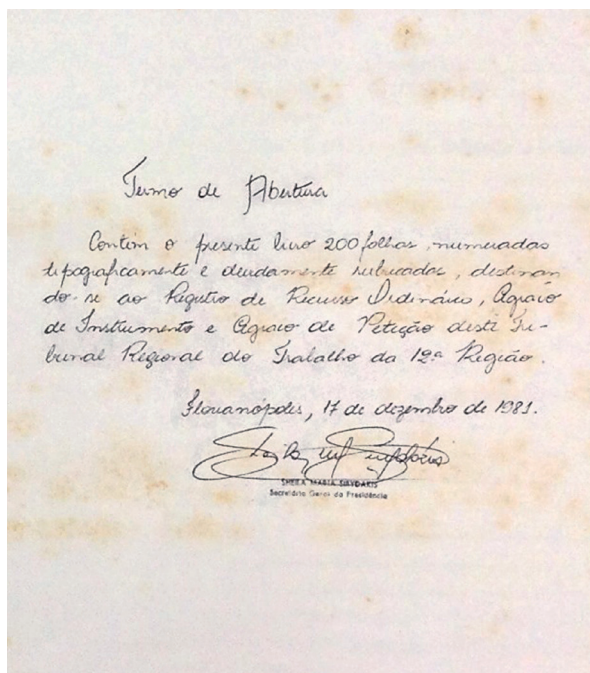 Termo de Abertura
Contém o presente livro 200 folhas, numeradas
tipograficamente e devidamente rubricadas, destinan
do-se ao Registro de Recurso Ordinário, Agravo
de Instrumento e Agravo de Petição deste Tri-
bunal Regional do Trabalho da 12ª Região.
Florianópolis, 17 de dezembro de 1981.
SHEILA MARIA
Secretária Geral da Presidência